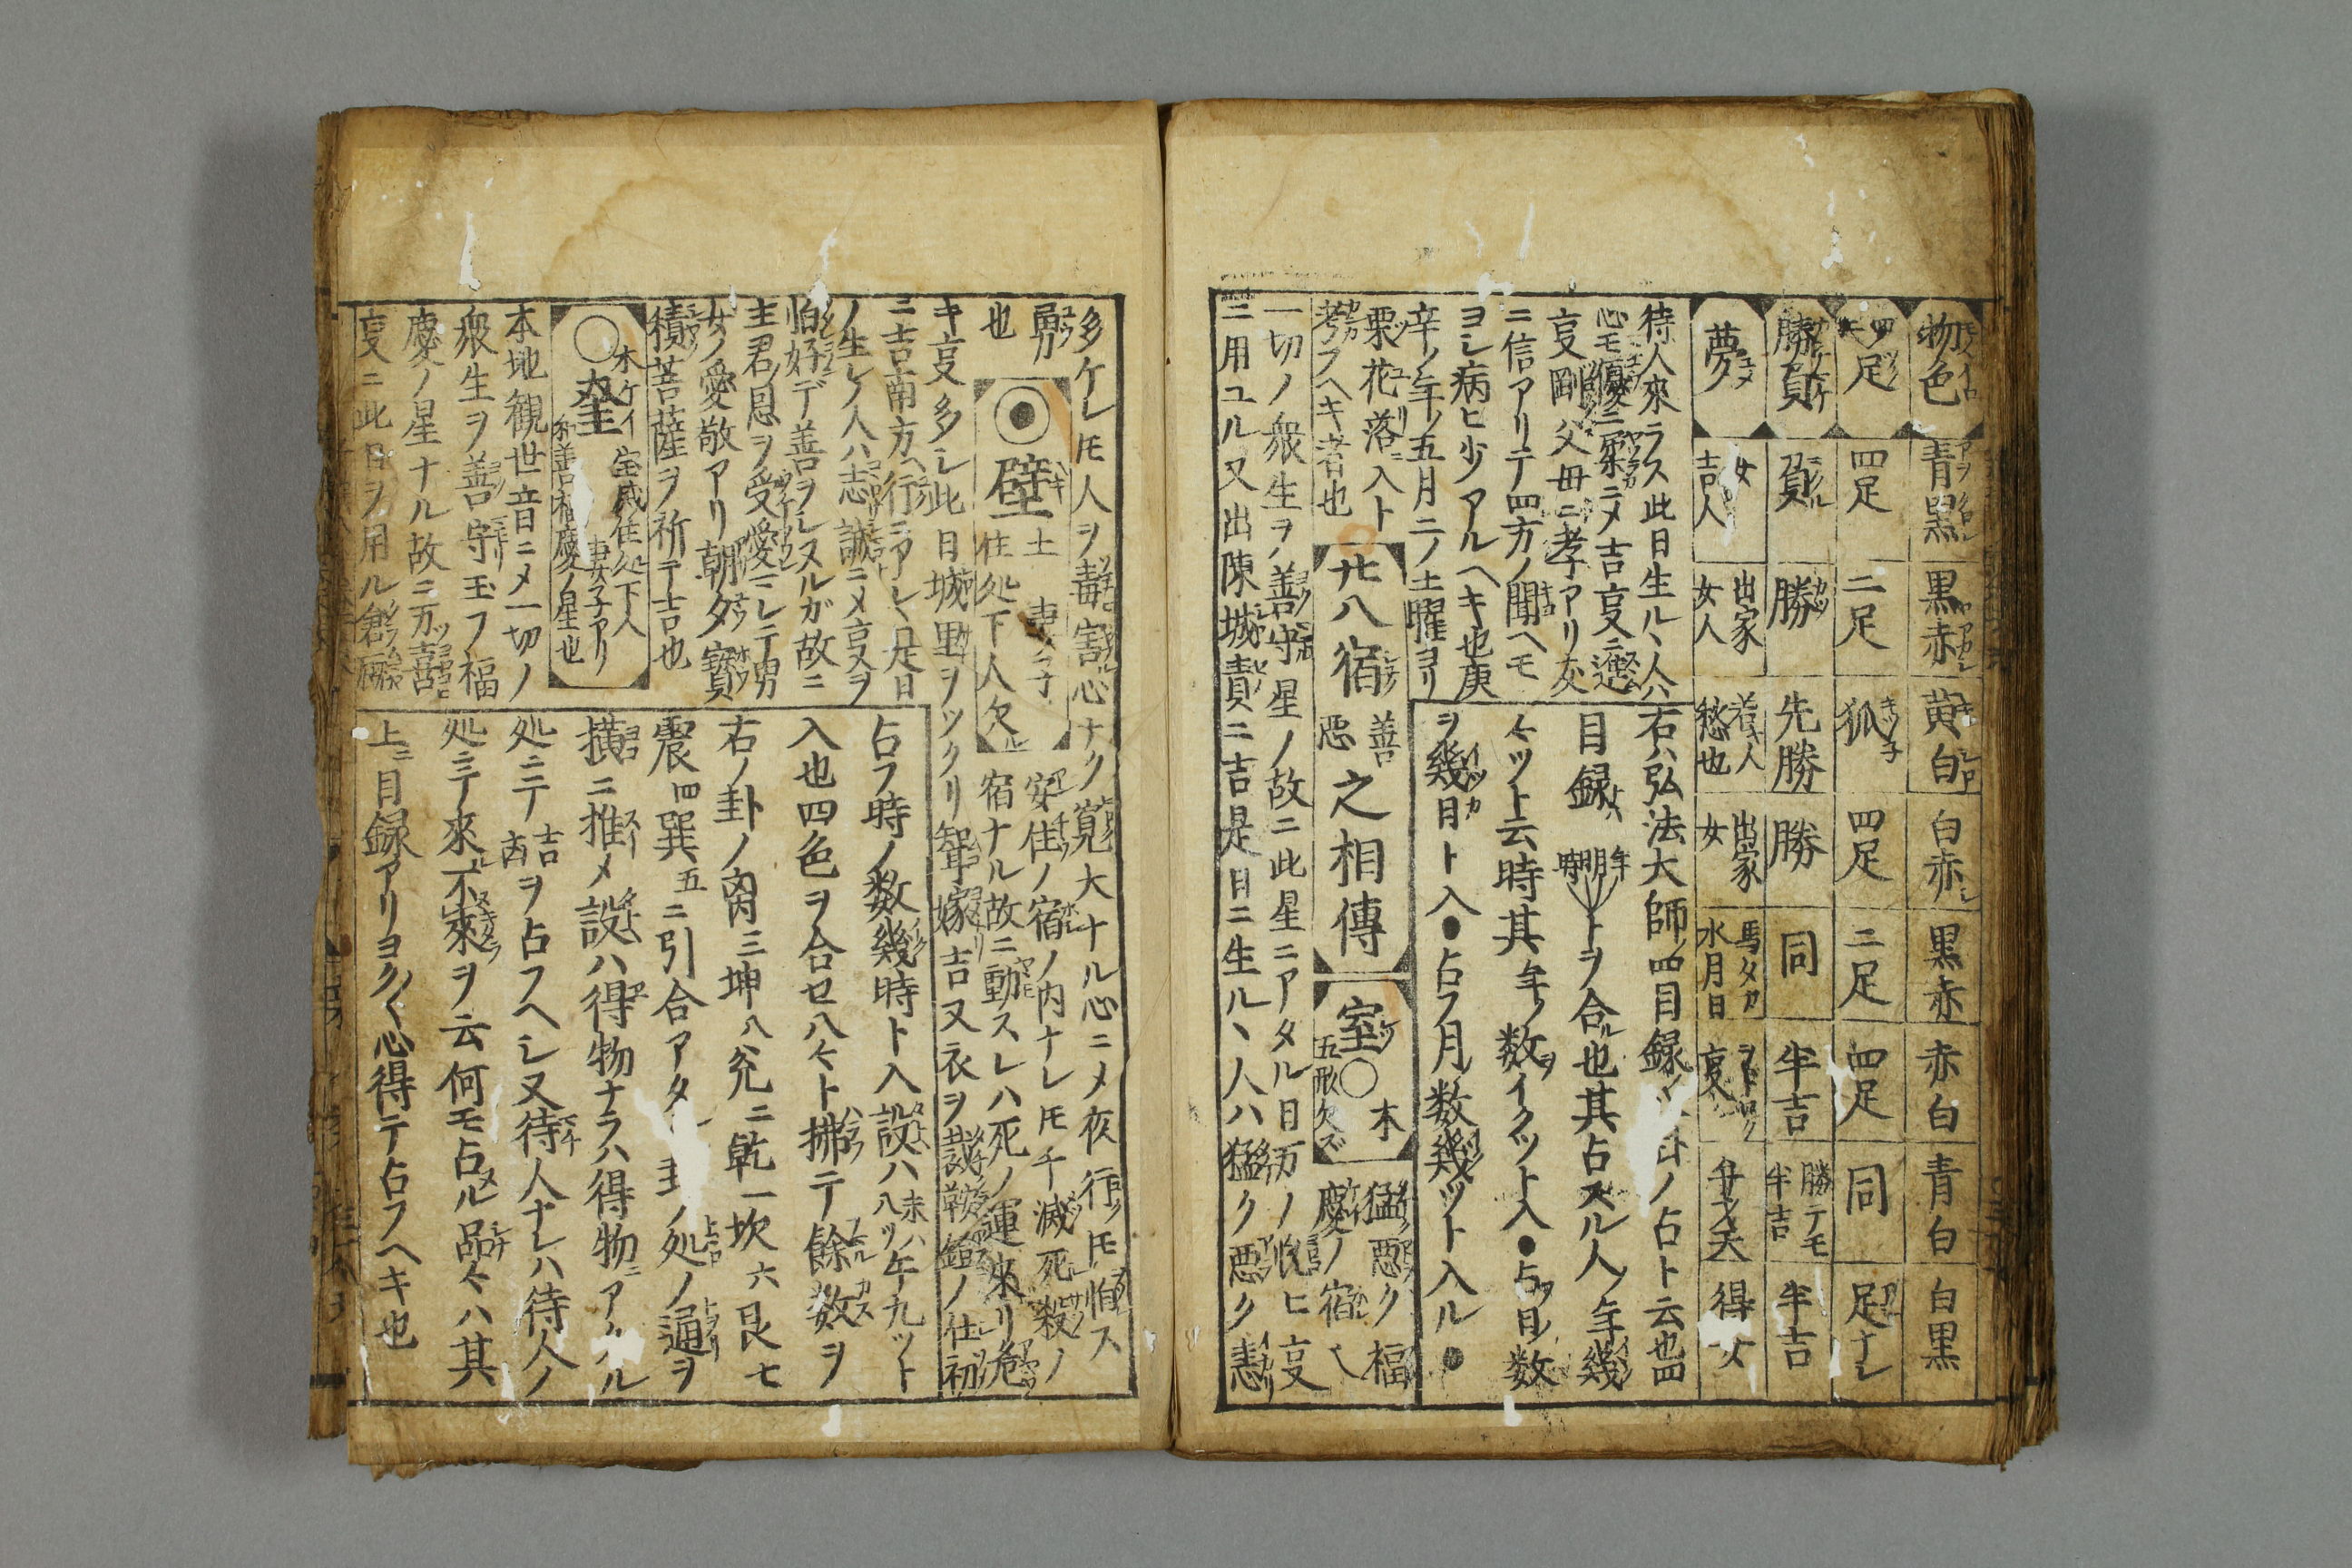 物色 青黒 黒赤 黄白 白赤 黒赤 赤白 青白 白黒
四足 四足 二足 狐 四足 二足 四足 同 足ナシ
勝負 負 勝 先勝 勝 同 半吉 勝テモ半吉 半吉
夢 女吉人 出家女人 若人愁也 出家女 馬タカ水月日
待人來ラス此日生ル丶人ハ
心モ優ニ柔ニメ吉㕝ニ
㕝剛父母ニ孝アリ友
ニ信アリテ四方ノ聞ヘモ
ヨシ病ヒ少アルヘキ也庚
辛ノ年ノ五月二ノ土曜ヨリ
右ハ弘法大師ノ四目録ノ占ト云也四
目録ト 年明時トヲ合ル也其占スル人ノ年幾
々ツト云時其年ノ数ヲイクツト入●占フ日ノ数
ヲ幾日ト入●占フ月ノ数幾ツト入ル●
栗花落ニ入ト
考フヘキ者也
廿八宿善惡之相傳
室 ○木 五形欠ズ
猛ク悪ク福
慶ノ宿ヘ
一切ノ衆生ヲノ善守星ノ故ニ此星ニアタル日万ノ悦ヒ㕝
ニ用ユル又出陳城責ニ吉是日ニ生ル丶人ハ猛ク悪ク恚
多ケレ𪜈人ヲ毒害心ナク寛大ナル心ニメ夜行ツ𪜈怕ス
勇
也
壁 土 妻ニ子
住処下人欠ル
安住ノ宿ノ内ナレ𪜈千滅死殺ノ
宿ナル故ニ動スレハ死ノ運來リ危
キ㕝多シ此日城里ヲツクリ聟嫁吉又衣ヲ裁鞍鎧ノ仕初
ニ吉南方ヘ行ニアシ〱是日
ノ生レノ人ハ志誠ニメ㕝ヲ
怕好デ善ヲレスルガ故ニ
主君ノ恩ヲ受愛ニレテ男
女ノ愛敬アリ朝夕寳
積菩薩ヲ祈テ吉也
○ 木ケイ
奎
住処下人
妻子アリ
善福慶ノ星也
本地観世音ニメ一切ノ
衆生ヲ善守玉フ福
慶ノ星ナル故ニ万ツ喜
㕝ニ此日ヲ用ル
占フ時ノ数幾時ト入設ハ未ハ八ツ午九ツト
入也四色ヲ合セ八々ト拂テ餘数ヲ
右ノ卦ノ离三坤八兊二乾一坎六艮七
震四巽五ニ引合アタル卦ノ処ノ通ヲ
横ニ推メ設ハ得物ナラハ得物ニアタル
処ニテ吉凶ヲ占フヘシ又待人ナレハ待人ノ
処ニテ來ル不來ヲ云何モ占メル品々ハ其
上ニ目録アリヨク〱心得テ占フヘキ也